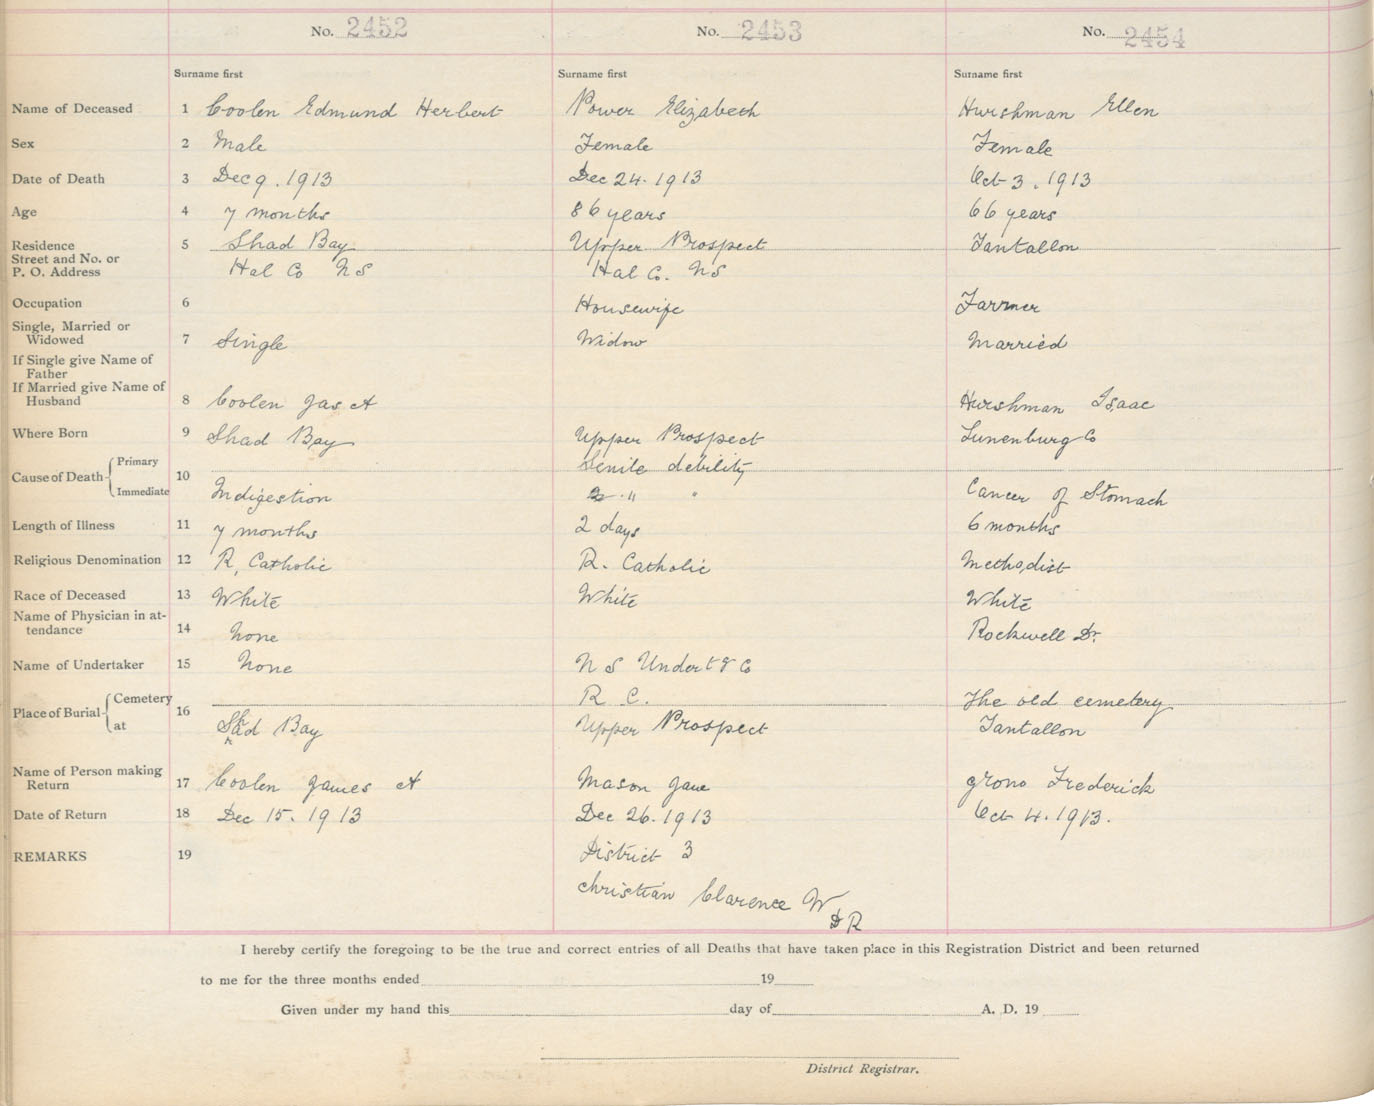 No. 2452 No. 2453 No. 2454
Surname first Surname first Surname first
Name of Deceased 1 Coolen Edmund Herbert Power Elizabeth Hurshman Ellen
Sex 2 Male Female Female
Date of Death 3 Dec 9. 1913 Dec 24. 1913 Oct 3. 1913
Age 4 7 months 86 years 66 years
Residence 5 Shad Bay Upper Prospect Tantallon
Street and No. or
P. O. Address Hal Co NS Hal Co. NS
Occupation 6 Housewife Farmer
Single, Married or
Widowed 7 Single Widow Married
If Single give Name of
Father
If Married give Name of
Husband 8 Coolen Jas A Hurshman Isaac
Where Born 9 Shad Bay Upper Prospect Lunenburg Co
Cause of Death Primary 10 Senile debility
Immediate Indigestion " " Cancer of Stomach
Length of Illness 11 7 months 2 days 6 months
Religious Denomination 12 R. Catholic R. Catholic Methodist
Race of Deceased 13 White White White
Name of Physician in at-
tendance 14 None Rockwell Dr.
Name of Undertaker 15 None N S Undert & Co
Place of Burial Cemetery 16 R C. The old cemetery
at Shad Bay Upper Prospect Tantallon
Name of Person making
Return 17 Coolen James A Mason Jane Grono Frederick
Date of Return 18 Dec 15. 1913 Dec 26. 1913 Oct 4. 1913.
REMARKS 19 District 3
Christian Clarence W
D R
I hereby certify the foregoing to be the true and correct entries of all Deaths that have taken place in this Registration District and been returned
to me for the three months ended 19
Given under my hand this day of A. D. 19
District Registrar.